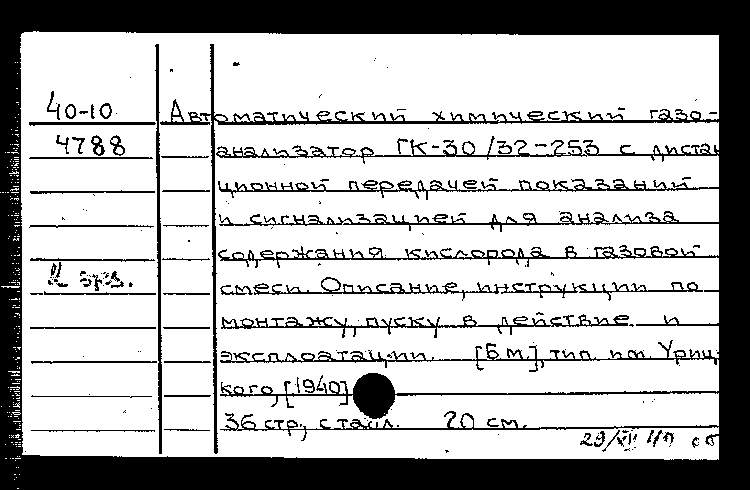 40-10 Автоматический химический газо-
4788 анализатор ГК-30/32-253 с дистан
ционной передачей показаний
и сигнализацией для анализа
содержания кислорода в газовой
2 экз. смеси. Описание, инструкции по
монтажу, пуску в действие и
эксплоатации. [Б.м.], тип. им. Уриц-
кого, [1940]
36 стр., с табл. 20 см.
29/XII 40